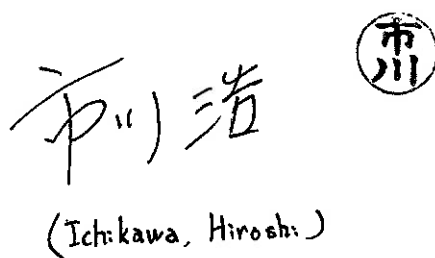 市川 浩
市川
(Ichikawa, Hiroshi)